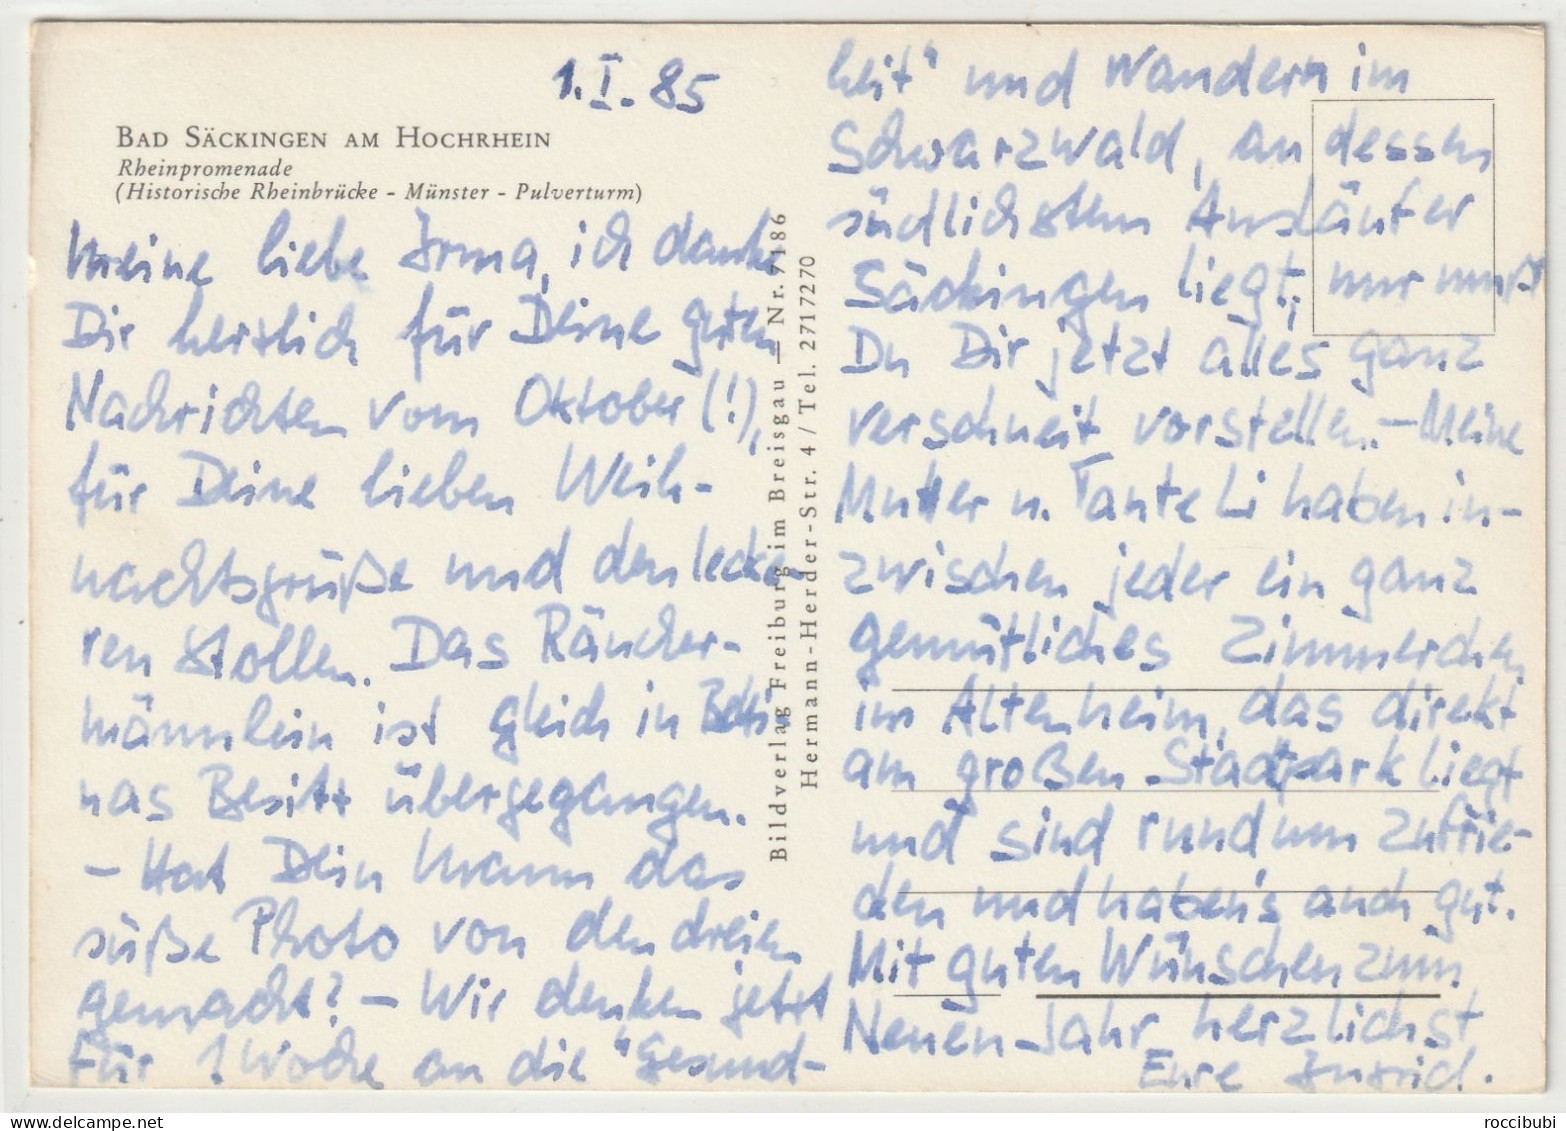 1.I.85
BAD SÄCKINGEN AM HOCHRHEIN
Rheinpromenade
(Historische Rheinbrücke - Münster - Pulverturm)
Meine liebe Irma, ich danke
Dir herzlich für Deine guten
Nachrichten vom Oktober (!),
für Deine lieben Weih-
nachtsgrüße und den lecke-
ren Stollen. Das Räucher-
männlein ist gleich in
nas Besitz übergegangen.
- Hat Dein Mann das
süße Photo von den dreien
gemacht? - Wir denken jetzt
für 1 Woche an die "Gesund-
Bildverlag Freiburg im Breisgau — Nr. 7186
Hermann-Herder-Str. 4 / Tel. 2717270
heit" und Wandern im
Schwarzwald, an dessen
südlichstem Ausläufer
Säckingen liegt; nur mußt
Du Dir jetzt alles ganz
verschneit vorstellen. - Meine
Mutter u. Tante Li haben in-
zwischen jeder ein ganz
gemütliches Zimmerchen
im Altenheim, das direkt
am großen Stadtpark liegt
und sind rundum zufrie-
den und haben's auch gut.
Mit guten Wünschen zum
Neuen Jahr herzlichst
Eure Ingrid.
roccibubi